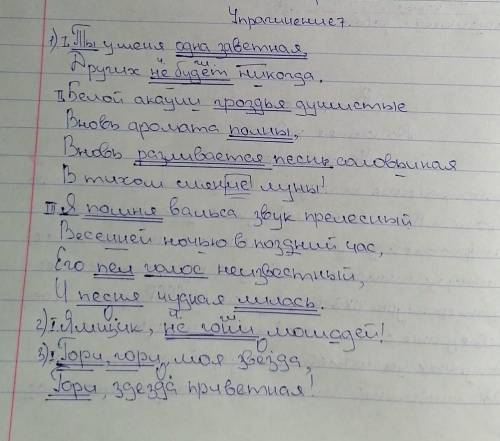 Упражнение 7.
1) I. Ты у меня одна заветная,
Других не будет никогда.
II. Белой акации гроздья душистые
Вновь аромата полны,
Вновь разливается песнь соловьиная
В тихом сиянье луны!
III. Я помня вальса звук прелесный
Весенней ночью в поздний час,
Его пел голос неизвестный,
И песня чудная лилась.
2) I. Ямщик, не гони лошадей!
3) I. Гори, гори, моя звезда,
Гори, здезда приветная!